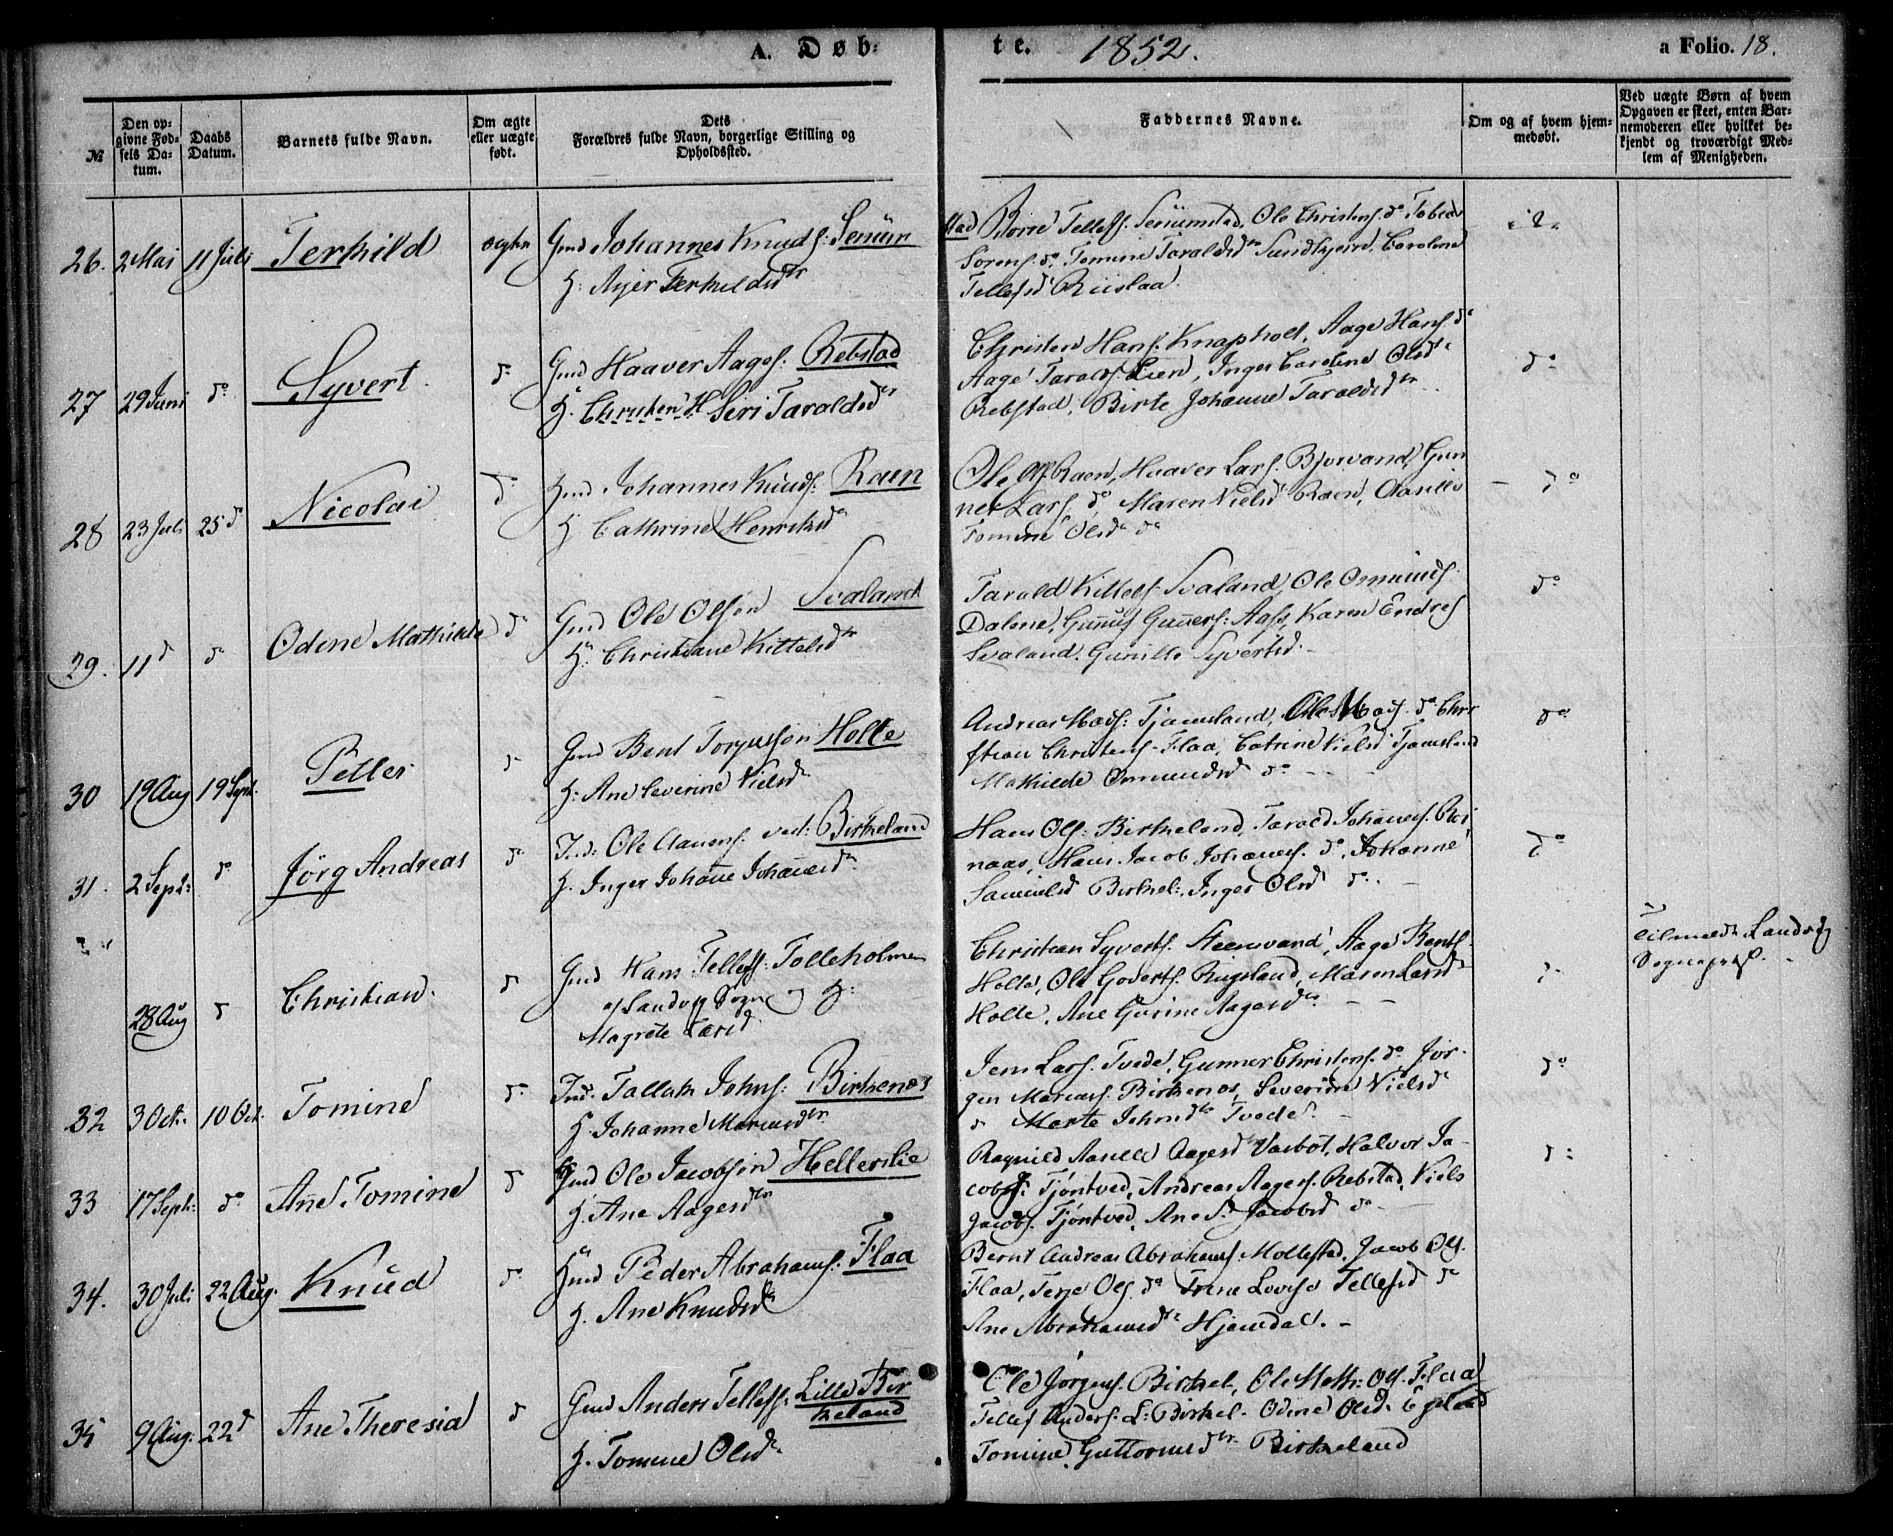 A. Døb-
te. 1852. a Folio. 18.
№
Den op-
givne Fød-
sels Da-
tum.
Daabs
Datum.
Barnets fulde Navn.
Om ægte
eller uægte
født.
Dets
Forældres fulde Navn, borgerlige Stilling og
Opholdssted.
Faddernes Navne.
Om og af hvem hjem-
medøbt.
Ved uægte Børn af hvem
Opgaven er skeet, enten Bar-
nemoderen eller hvilket be-
kjendt og troværdigt Med-
lem af Menigheden.
26. 2 Mai 11 Juli Terkild ægte
Gmd Johannes Knuds: Seniumstad
H: Anjer Terkildsdtr
Børre Tellefs. Seniumstad, Ole Christens. do Tobias
Sørens. do, Tomine Taraldsdtr Sundtgjerd. Caroline
Tellefsd Riislaa.
27 29 Juni do Syvert. do
Gmd Haaver Aages: Rebstad
H. Christen H Siri Taraldsdtr
Christen Hans. Knapholt, Aage Hans. do
Aage Taralds. Lien, Inger Caroline Olsd
Rebstad, Birte Johanne Taraldsdtr
do
28 23 Juli 25 d Nicolai d
Gmd Johannes Knuds: Raen
H Cathrine Henriksd
Ole Ols. Raen, Haaver Lars. Bjorvand, Gun
ner Lars. do, Maren Nielsd Raen,
Tomine Olsd do
do
29. 11 d do Odine Mathilde do
Gmd Ole Olson Svaland
H. Christiane Kittelsdtr
Tarald Kittels. Svaland, Ole Osmunds.
Dalene, Gunner: Aass, Karen Endres
Svaland. Gunille Syvertsd.
do
30 19 Aug 19 Sept. Peller do
Gmd Bent Torjusson Holte
H. Ane Severine Nielsd
Andreas Mads: Tjomsland, Ole Mads. do Chri
stian Christens. Flaa, Catrine Nielsd Tjomsland
Mathilde Osmundsd do
do
31. 2 Sept: do Jörg Andreas do
Ind: Ole ved: Birkeland
H. Inger Johane Johanesd
Hans Ols: Birkeland, Tarald Johanes. Rei
naas, Hans Jacob Johannes. do, Johanne
Samuelsd Birkel:, Inger Olsd do.
do
28 Aug do Christian. do
Gmd Hans Tellefs: Tolleholmen
af Landvig Sogn og H:
Magrete Larsd
Christian Syverts. Steensvand, Aage Bents.
Holte, Ole Goverts. Rugsland, Maren Larsd
Holte, Ane Gurine Aagesdtr
Tilmeldt Landvig
Sognepræst.
32 3 Oct. 10 Oct. Tomine do
Ind. Tallak Johns: Birkenes
H. Johanne Marcusdtr
Jens Lars. Tvede, Gunner Christens. do Jör-
gen Marcus. Birkenes, Severine Nielsd
do Marte Johnsdtr Tvede.
do
33 17 Sept: do Ane Tomine do
Gmd Ole Jacobson Hellerslie
H. Ane Aagesdtr
Ragnild Aasille Aagesd Vasbot, Halvor Ja-
cobs: Tjöntved, Andreas Aages. Rebstad, Niels
Jacobs. Tjöntved, Ane S. Jacobsd do
d:
34. 30 Juli 22 Aug. Knud do
Gmd Peder Abrahams: Flaa
H. Ane Knudsd
Bernt Andreas Abrahams. Mollestad, Jacob Ols.
Flaa, Terje Ols. do Trine Lovise Tellefsd do
Ane Abrahamsdtr Hjemdal.
35 9 Aug. 22 d Ane Theresia do
Gmd Anders Tellefs: Lille Bir
keland
H. Tomine Olsd
Ole Jörgens. Birkel., Ole Math: Ols. Flaa
Tellef Anders. L: Birkel. Odine Olsd. Egeland
Tomine Guttormsdtr Birkeland